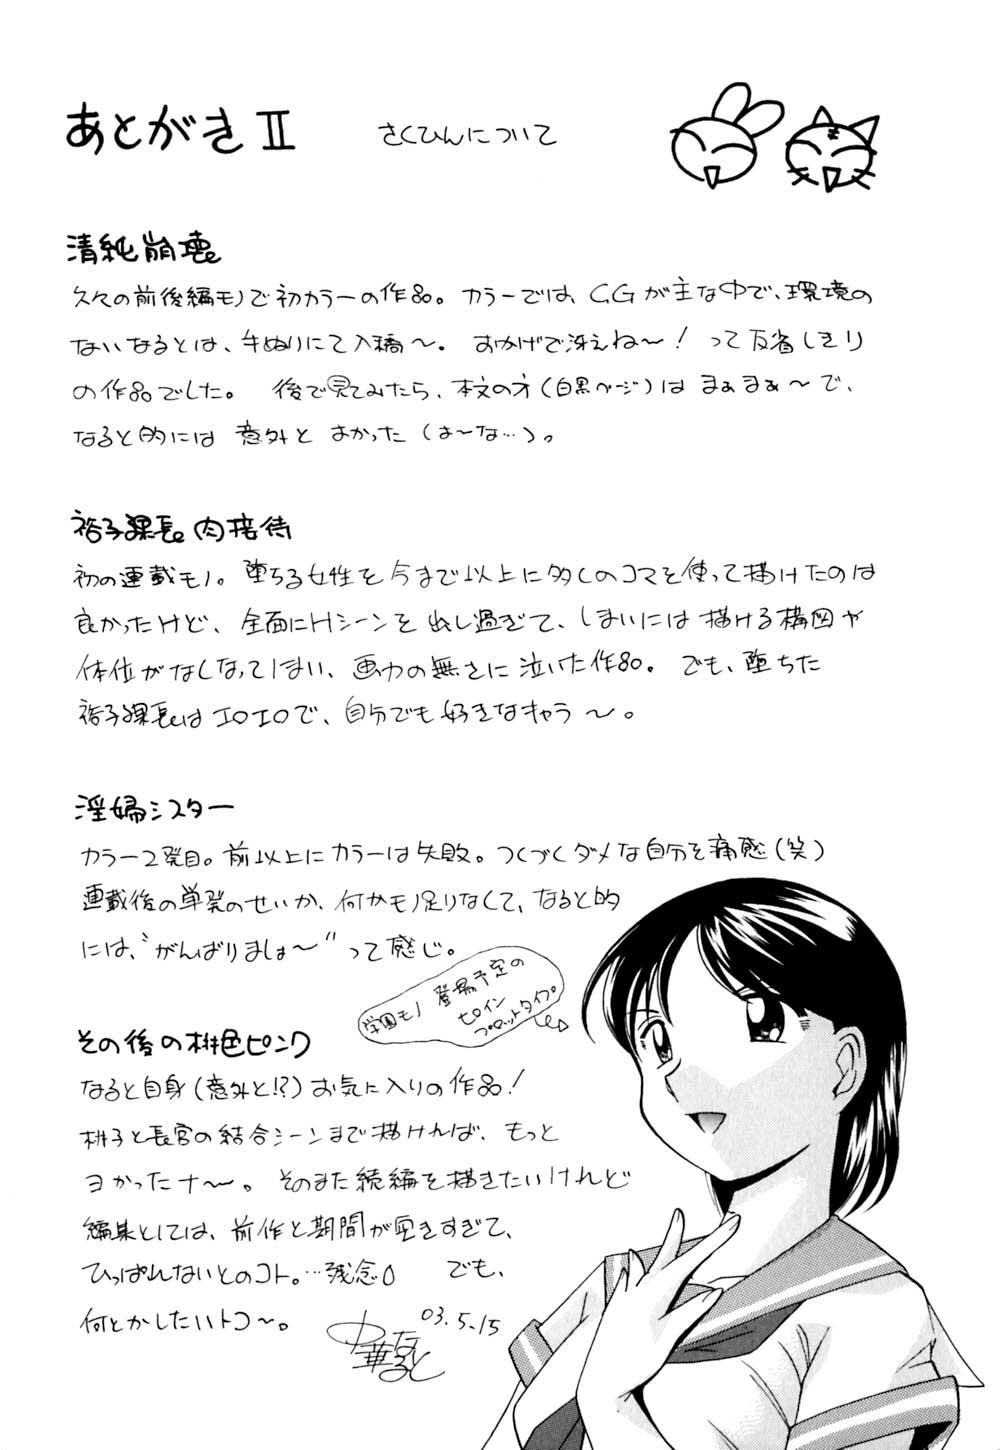 あとがきⅡ さくひんについて
清純崩壊。
久々の前後編モノで初カラーの作品。カラーでは、CGが主な中で、環境の
ないなるとは、手ぬりにて入稿〜。おかげで冴えね〜！って反省しきり
の作品でした。後で見てみたら、本文の方（白黒ページ）はまぁまぁ〜で、
なると的には意外とよかった（は〜な…）。
裕子課長。肉接待
初の連載モノ。堕ちる女性を今まで以上に多くのコマを使って描けたのは
良かったけど、全面にHシーンを出し過ぎて、しまいには描ける構図や
体位がなくなってしまい、画力の無さに泣いた作品。でも、堕ちた
裕子課長はエロエロで、自分でも好きなキャラ〜。
淫婦シスター
カラー2発目。前以上にカラーは失敗。つくづくダメな自分を痛感（笑）
連載後の単発のせいか、何かモノ足りなくて、なると的
には、“がんばりましょ〜”って感じ。
学園モノ登場予定の
ヒロイン
プロットタイプ。
その後の桃色ピンク
なると自身（意外と!?）お気に入りの作品！
桃子と長官の結合シーンまで描ければ、もっと
ヨかったナ〜。そのまた続編を描きたいけれど
編集としては、前作と期間が空きすぎて、
ひっぱれないとのコト。…残念 でも、
何とかしたいトコ〜。
03.5.15
中華なると